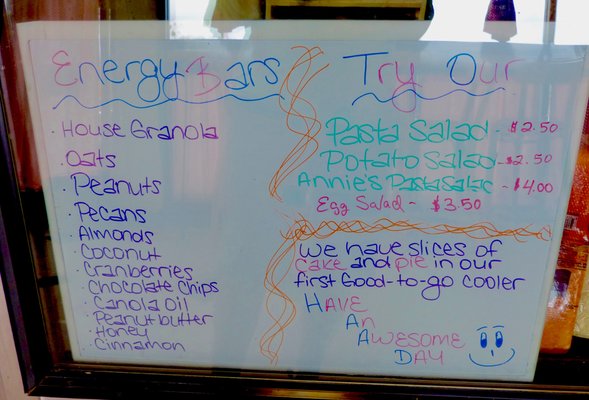 Energy Bars
· House Granola
· Oats
· Peanuts
· Pecans
· Almonds
· Coconut
· Cranberries
· Chocolate Chips
· Canola Oil
· Peanut butter
· Honey
· Cinnamon
Try Our
Pasta Salad - $2.50
Potato Salad - $2.50
Annie's Pasta Salad - $4.00
Egg Salad - $3.50
We have slices of
cake and pie in our
first Good-to-go cooler
Have
An
Awesome
Day